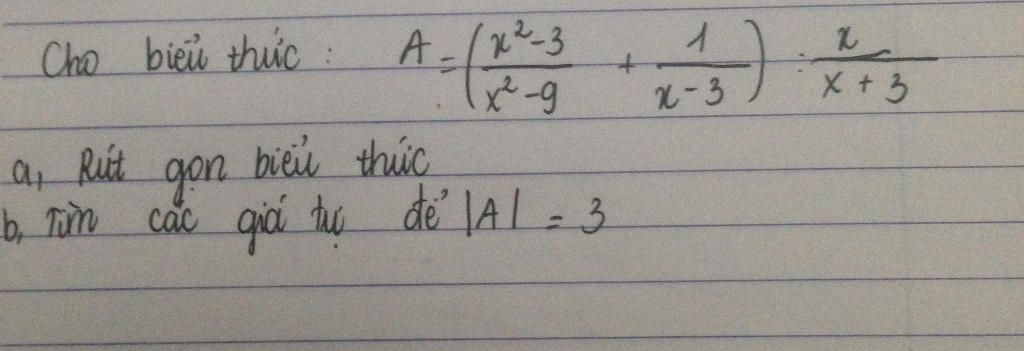 Cho biểu thức : A = ( \frac{x²-3}{x²-9} + \frac{1}{x-3} ) : \frac{x}{x+3}
a, Rút gọn biểu thức
b, Tìm các giá trị để |A| = 3